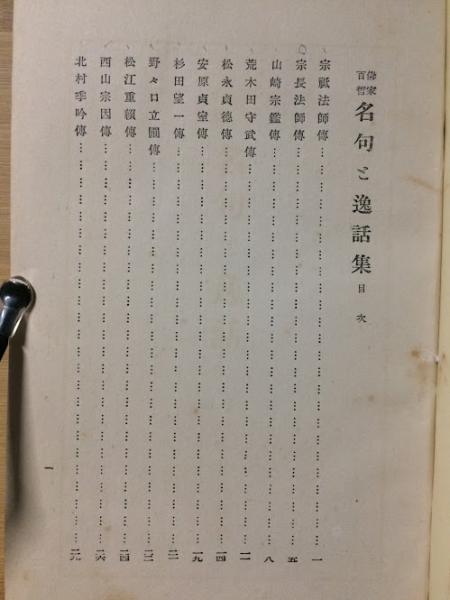 俳家百哲 名句と逸話集 目次
宗祇法師傳……一
宗長法師傳……五
山崎宗鑑傳……八
荒木田守武傳……一一
松永貞德傳……一四
安原貞室傳……一九
杉田望一傳……二一
野々口立圃傳……二三
松江重頼傳……二四
西山宗因傳……二六
北村季吟傳……二九
一